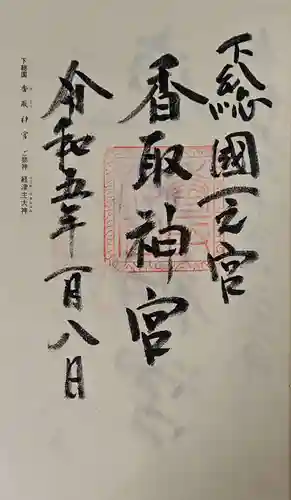 下總國一之宮
香取神宮
令和五年一月八日
下総国 香取神宮 ご祭神 経津主大神